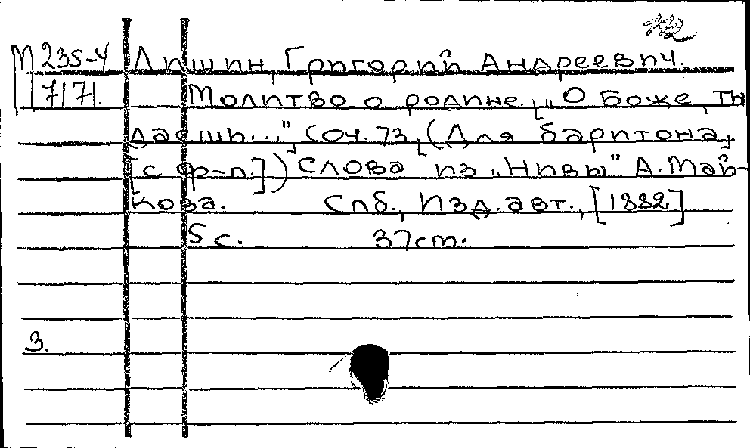 М 235-4 Лишин, Григорий Андреевич.
7171. Молитва о родине. „О Боже, ты
даешь...", Соч. 73, (Для баритона,
[с ф-п.]) Слова из „Нивы" А. Май-
кова. Спб., Изд. авт., [1882]
5 с. 37см.
3.